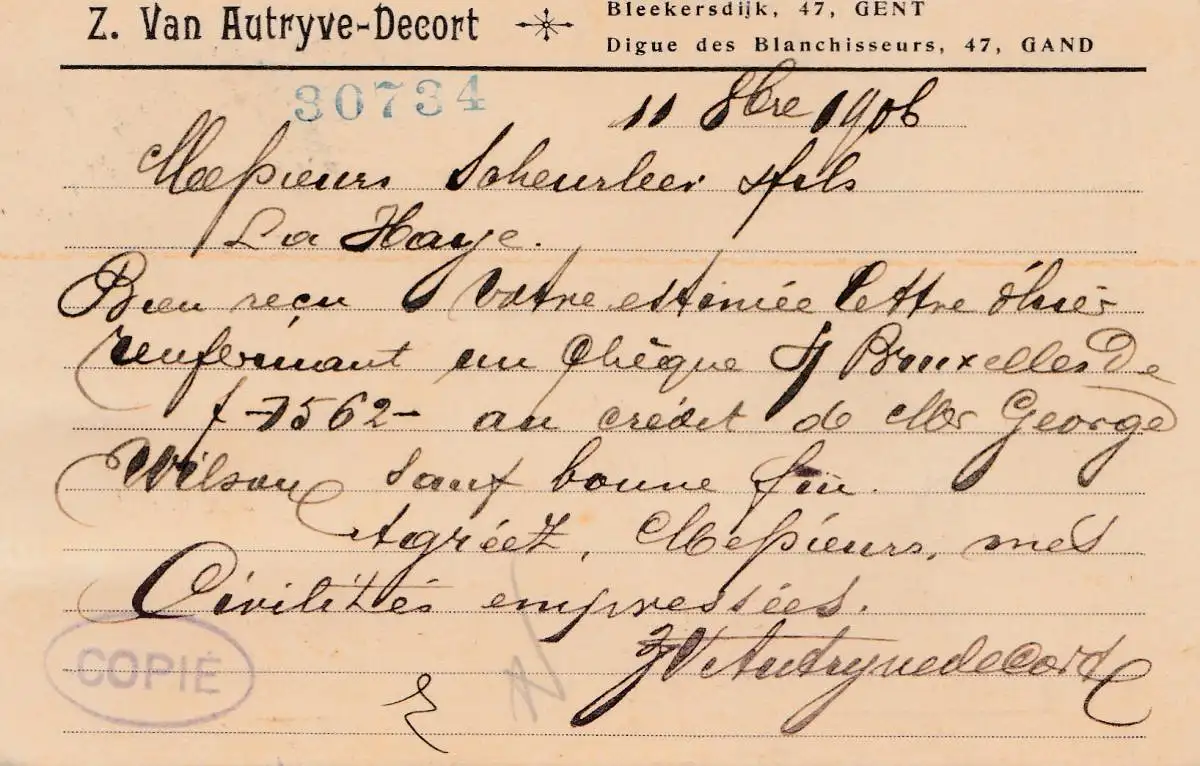 Z. Van Autryve-Decort
Bleekersdijk, 47, GENT
Digue des Blanchisseurs, 47, GAND
30734
11 8bre 1906
Messieurs Scheurleer & fils
La Haye.
Bien reçu votre estimée lettre d'hier
renfermant un chèque s/ Bruxelles de
f -7562- au crédit de Mr George
Wilson sauf bonne fin.
Agréez, Messieurs, mes
Civilités empressées.
ZVAutryvedecort
COPIÉ